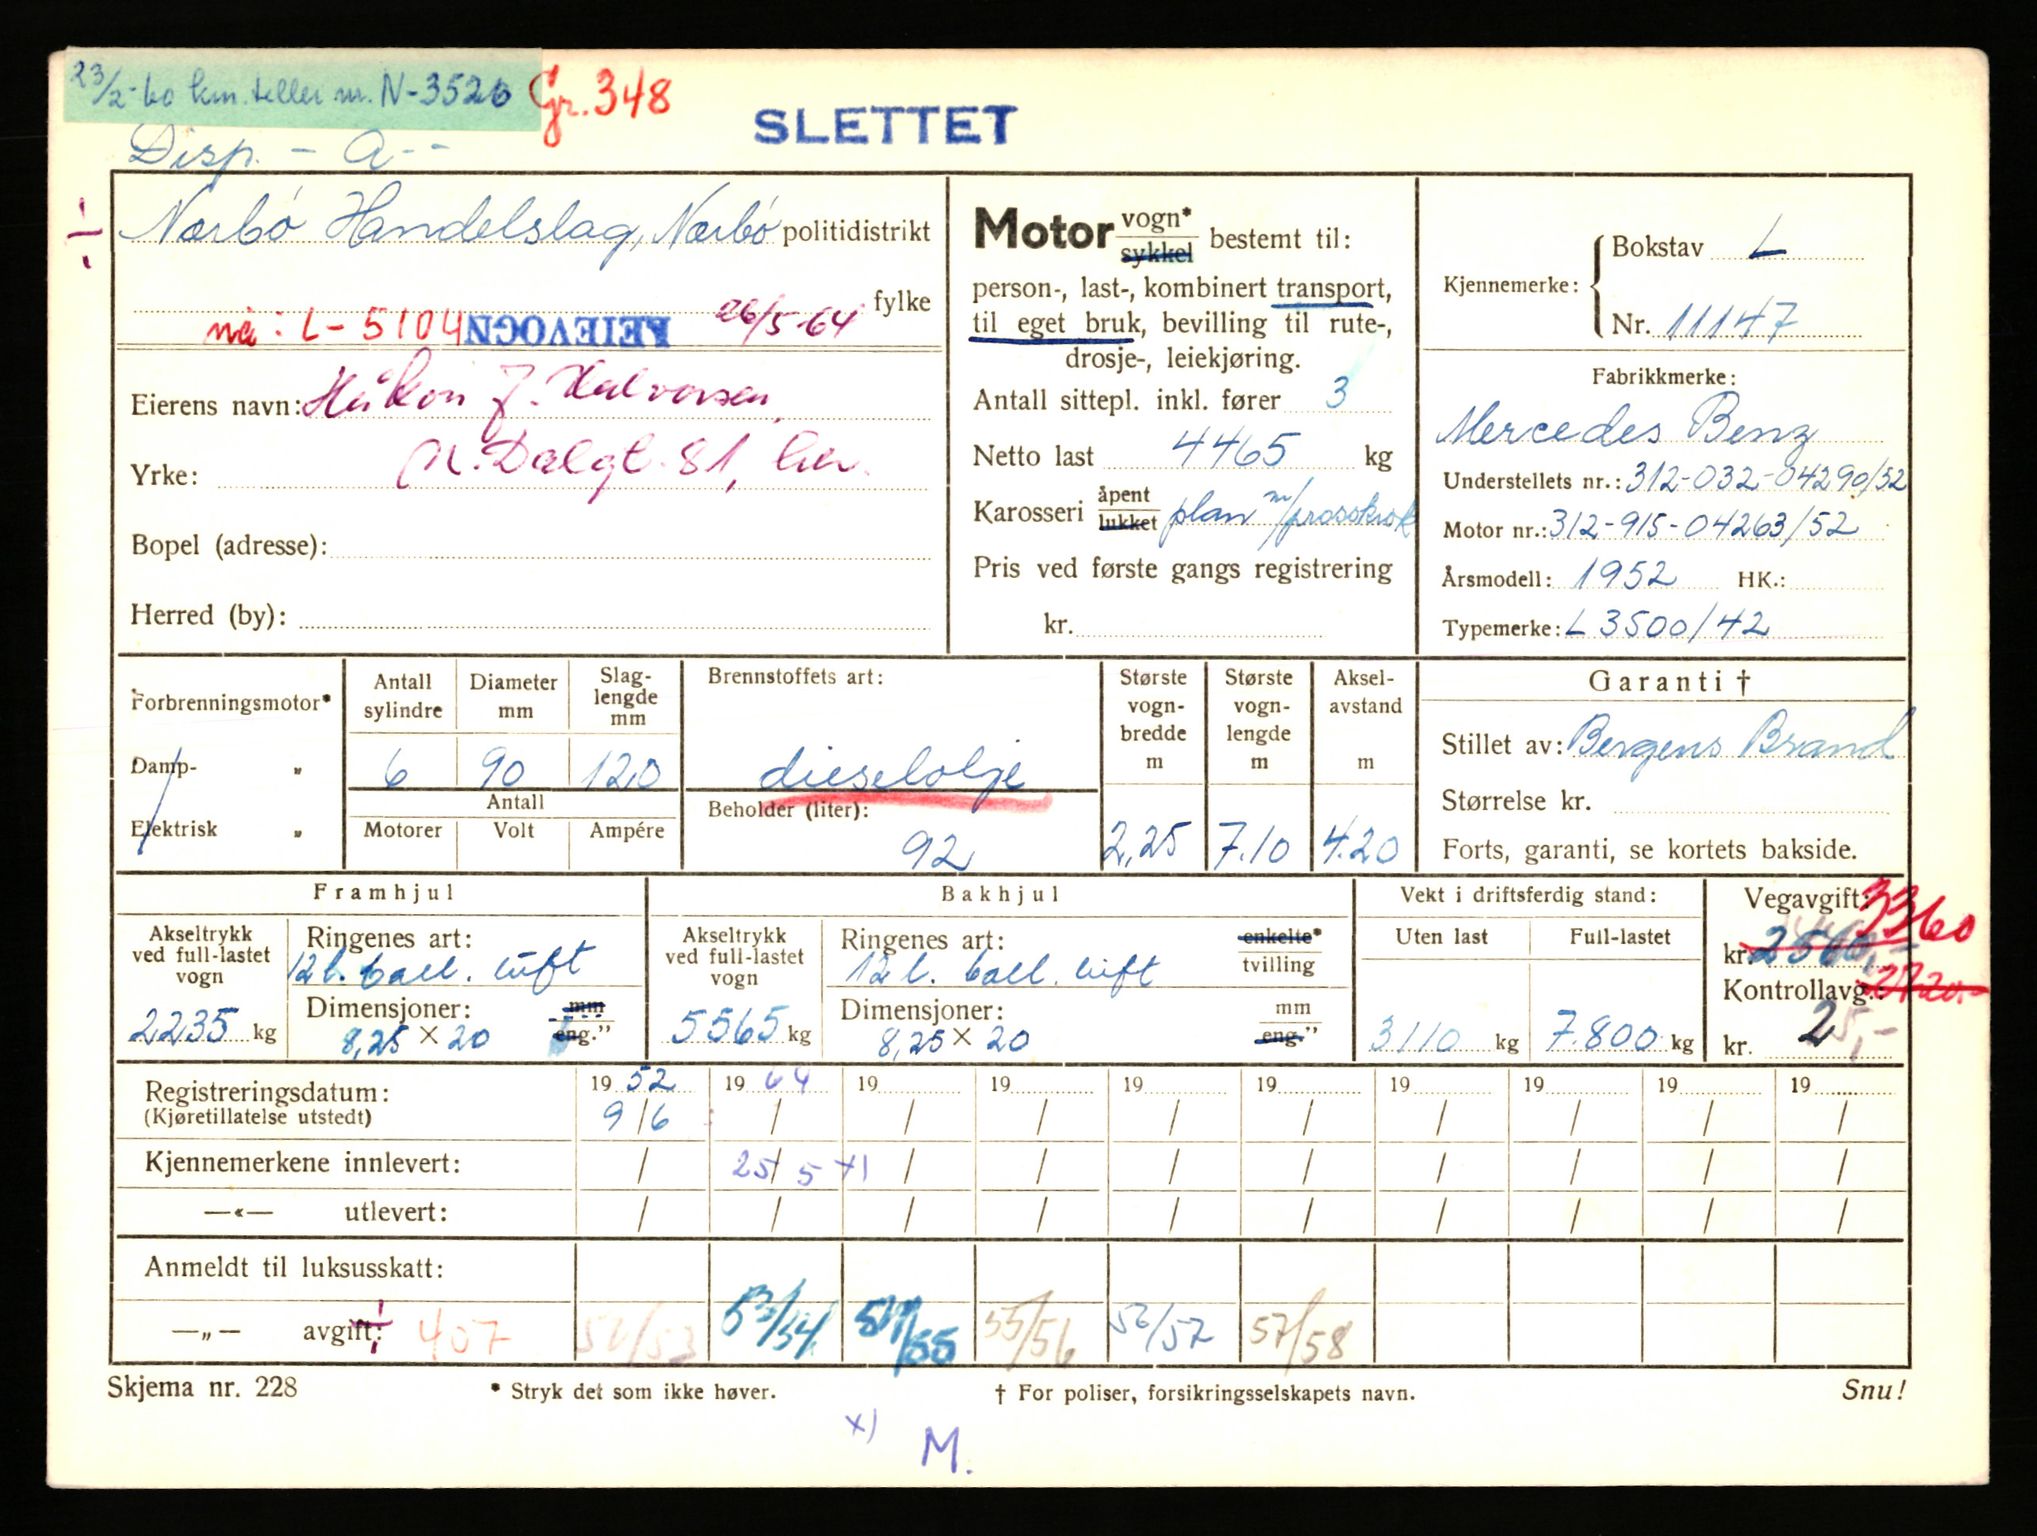 23/2-60 km.teller nr. N-3526 Gr. 348
SLETTET
Disp. - a - -
Nærbö Handelslag, Nærbö politidistrikt
fylke
nå: L-5104 LEIEVOGN 26/5-64
Eierens navn: Håkon J. Halvorsen,
Yrke: N. Dalgt. 81, her.
Bopel (adresse):
Herred (by):
Motor vogn* sykkel bestemt til:
person-, last-, kombinert transport,
til eget bruk, bevilling til rute-,
drosje-, leiekjøring.
Antall sittepl. inkl. fører 3
Netto last 4465 kg
Karosseri åpent lukket plan m/
Pris ved første gangs registrering
kr.
Kjennemerke: Bokstav L
Nr. 11147
Fabrikkmerke:
Mercedes Benz
Understellets nr.: 312-032-04290/52
Motor nr.: 312-915-04263/52
Årsmodell: 1952 HK.:
Typemerke: L 3500/42
Forbrenningsmotor*
Damp- „
Elektrisk „
Antall sylindre 6
Diameter mm 90
Slag-lengde mm 120
Antall
Motorer Volt Ampére
Brennstoffets art:
dieselolje
Beholder (liter):
92
Største vogn-bredde m 2,25
Største vogn-lengde m 7.10
Aksel-avstand m 4.20
Garanti †
Stillet av: Bergens Brand
Størrelse kr.
Forts, garanti, se kortets bakside.
Framhjul
Akseltrykk ved full-lastet vogn
2235 kg
Ringenes art:
12 l. ball. luft
Dimensjoner: mm
8,25 x 20 eng.”
Bakhjul
Akseltrykk ved full-lastet vogn
5565 kg
Ringenes art: enkelte*
12 l. ball. luft tvilling
Dimensjoner: mm
8,25 x 20 eng.”
Vekt i driftsferdig stand:
Uten last Full-lastet
3110 kg 7.800 kg
Vegavgift: 3360
kr. 2560,-
Kontrollavg.: 2720.-
kr. 25,-
Registreringsdatum: 19 52 19 64 19 19 19 19 19 19 19 19
(Kjøretillatelse utstedt) 9/6 / / / / / / / / /
Kjennemerkene innlevert: / 25/5 x) / / / / / / / /
—«— utlevert: / / / / / / / / / /
Anmeldt til luksusskatt:
—„— avgift: 407 52/53 53/54 54/55 55/56 56/57 57/58
Skjema nr. 228 * Stryk det som ikke høver. † For poliser, forsikringsselskapets navn. Snu!
x) M.